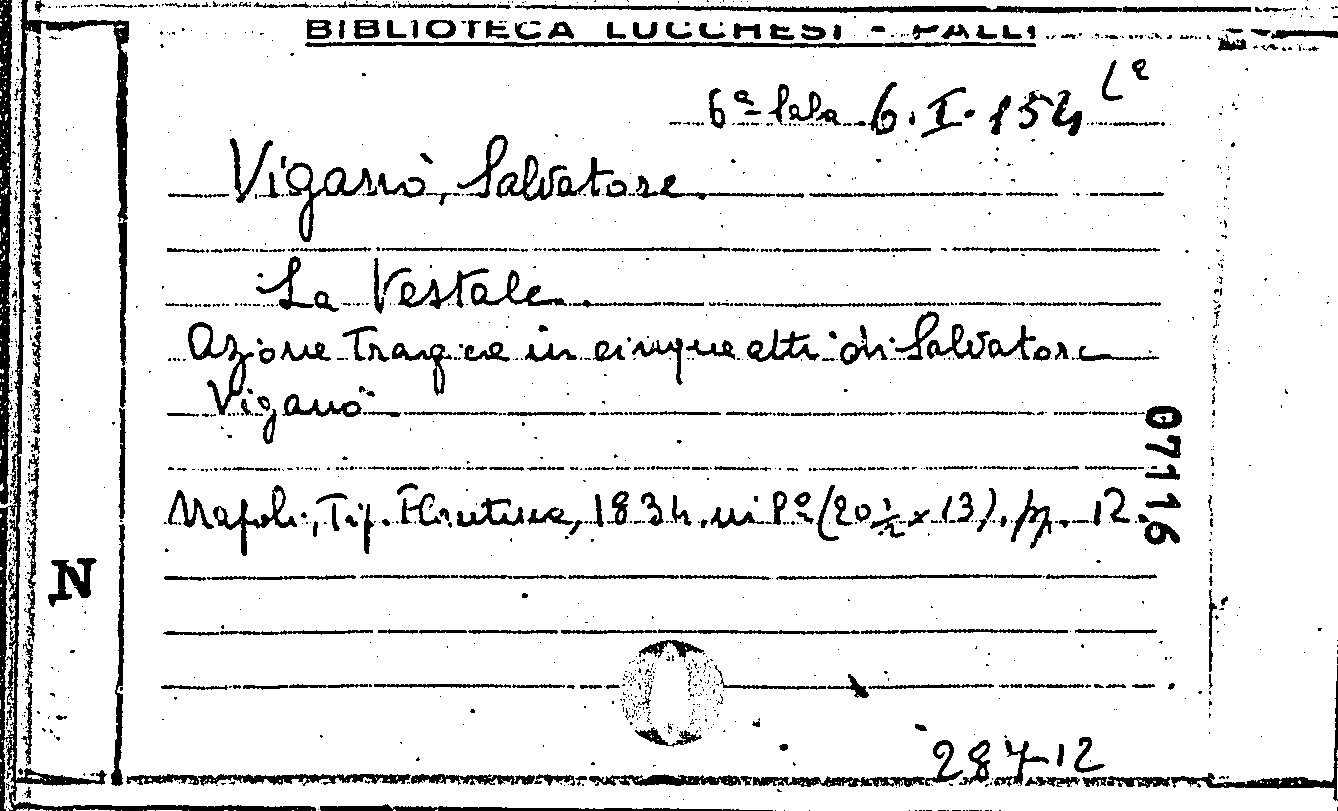 BIBLIOTECA LUCCHESI - PALLI
6ª Sala 6. I. 154
Viganò, Salvatore.
La Vestale.
Azione tragica in cinque atti di Salvatore
Viganò
Napoli, Tip. Flautina, 1834. in 8º (20 ½ x 13). pp. 12.
07116
N
28712